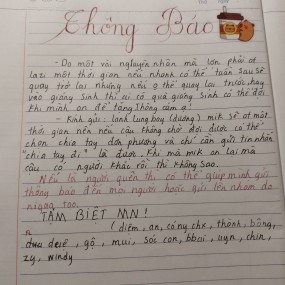 Thông Báo
- Do một vài nguyên nhân mà lơn phải of
lazi một thời gian nếu nhanh có thể tuần sau sẽ
quay trở lại nhưng nếu o thể quay lại trước hay
vào giáng sinh thì ai có quà giáng sinh có thể đợi
khi mình on để tặng thông cảm ạ!
- Kính gửi: lanh lung boy (dương) mik sẽ of một
thời gian nên nếu cậu không chờ đợi được có thể
chọn chia tay đơn phương và chỉ cần gửi tin nhắn
"chia tay đi" là được. Khi mà mik on lại mà
cậu có người khác rồi thì không sao.
Nếu là người quen thì có thể giúp mình gửi
thông báo đến mọi người hoặc gửi lên nhóm do
TẠM BIỆT MN!
(diệm, an, công chx, thành, băng,
gô, mui, sóc con, bbai, uyn, chin,
zy, windy